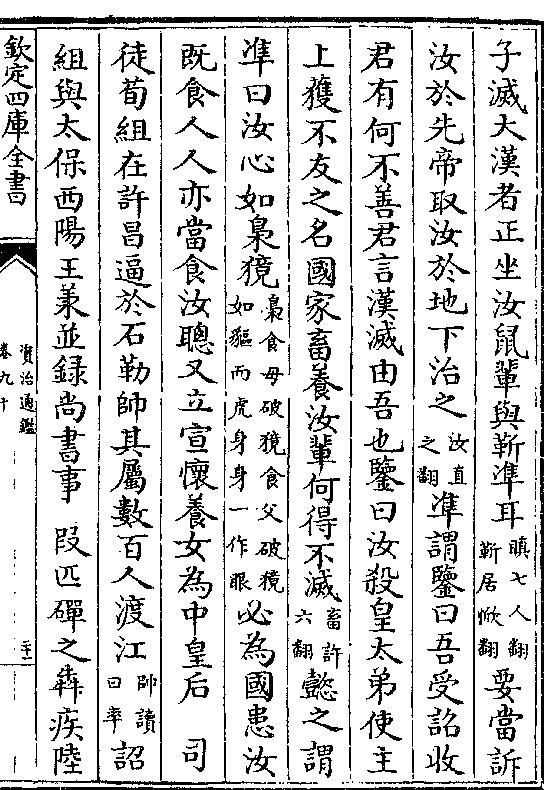 子滅大漢者正坐汝鼠輩與靳準耳瞋七人翻靳居惞翻要當訴
汝於先帝取汝於地下治之汝直之翻準謂鑒曰吾受詔收
君有何不善君言漢滅由吾也鑒曰汝殺皇太弟使主
上獲不友之名國家畜養汝輩何得不滅畜許六翻懿之謂
準曰汝心如梟獍梟食母破獍食父破獍如貙而虎身身一作眼必為國患汝
既食人人亦當食汝聰又立宣懷養女為中皇后 司
徒荀組在許昌逼於石勒帥其屬數百人渡江帥讀曰率詔
組與太保西陽王羕並録尚書事 段匹磾之犇疾陸
欽定四庫全書
資治通鑑
卷九十
二十一